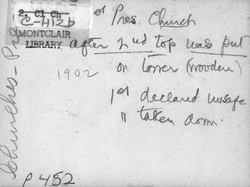 1st Pres. Church
2. Cl Ch
C-412b
MONTCLAIR
LIBRARY.
after 2nd top was put
on tower (wooden)
1902
1st declared unsafe
" taken down.
Churches-P
p 452